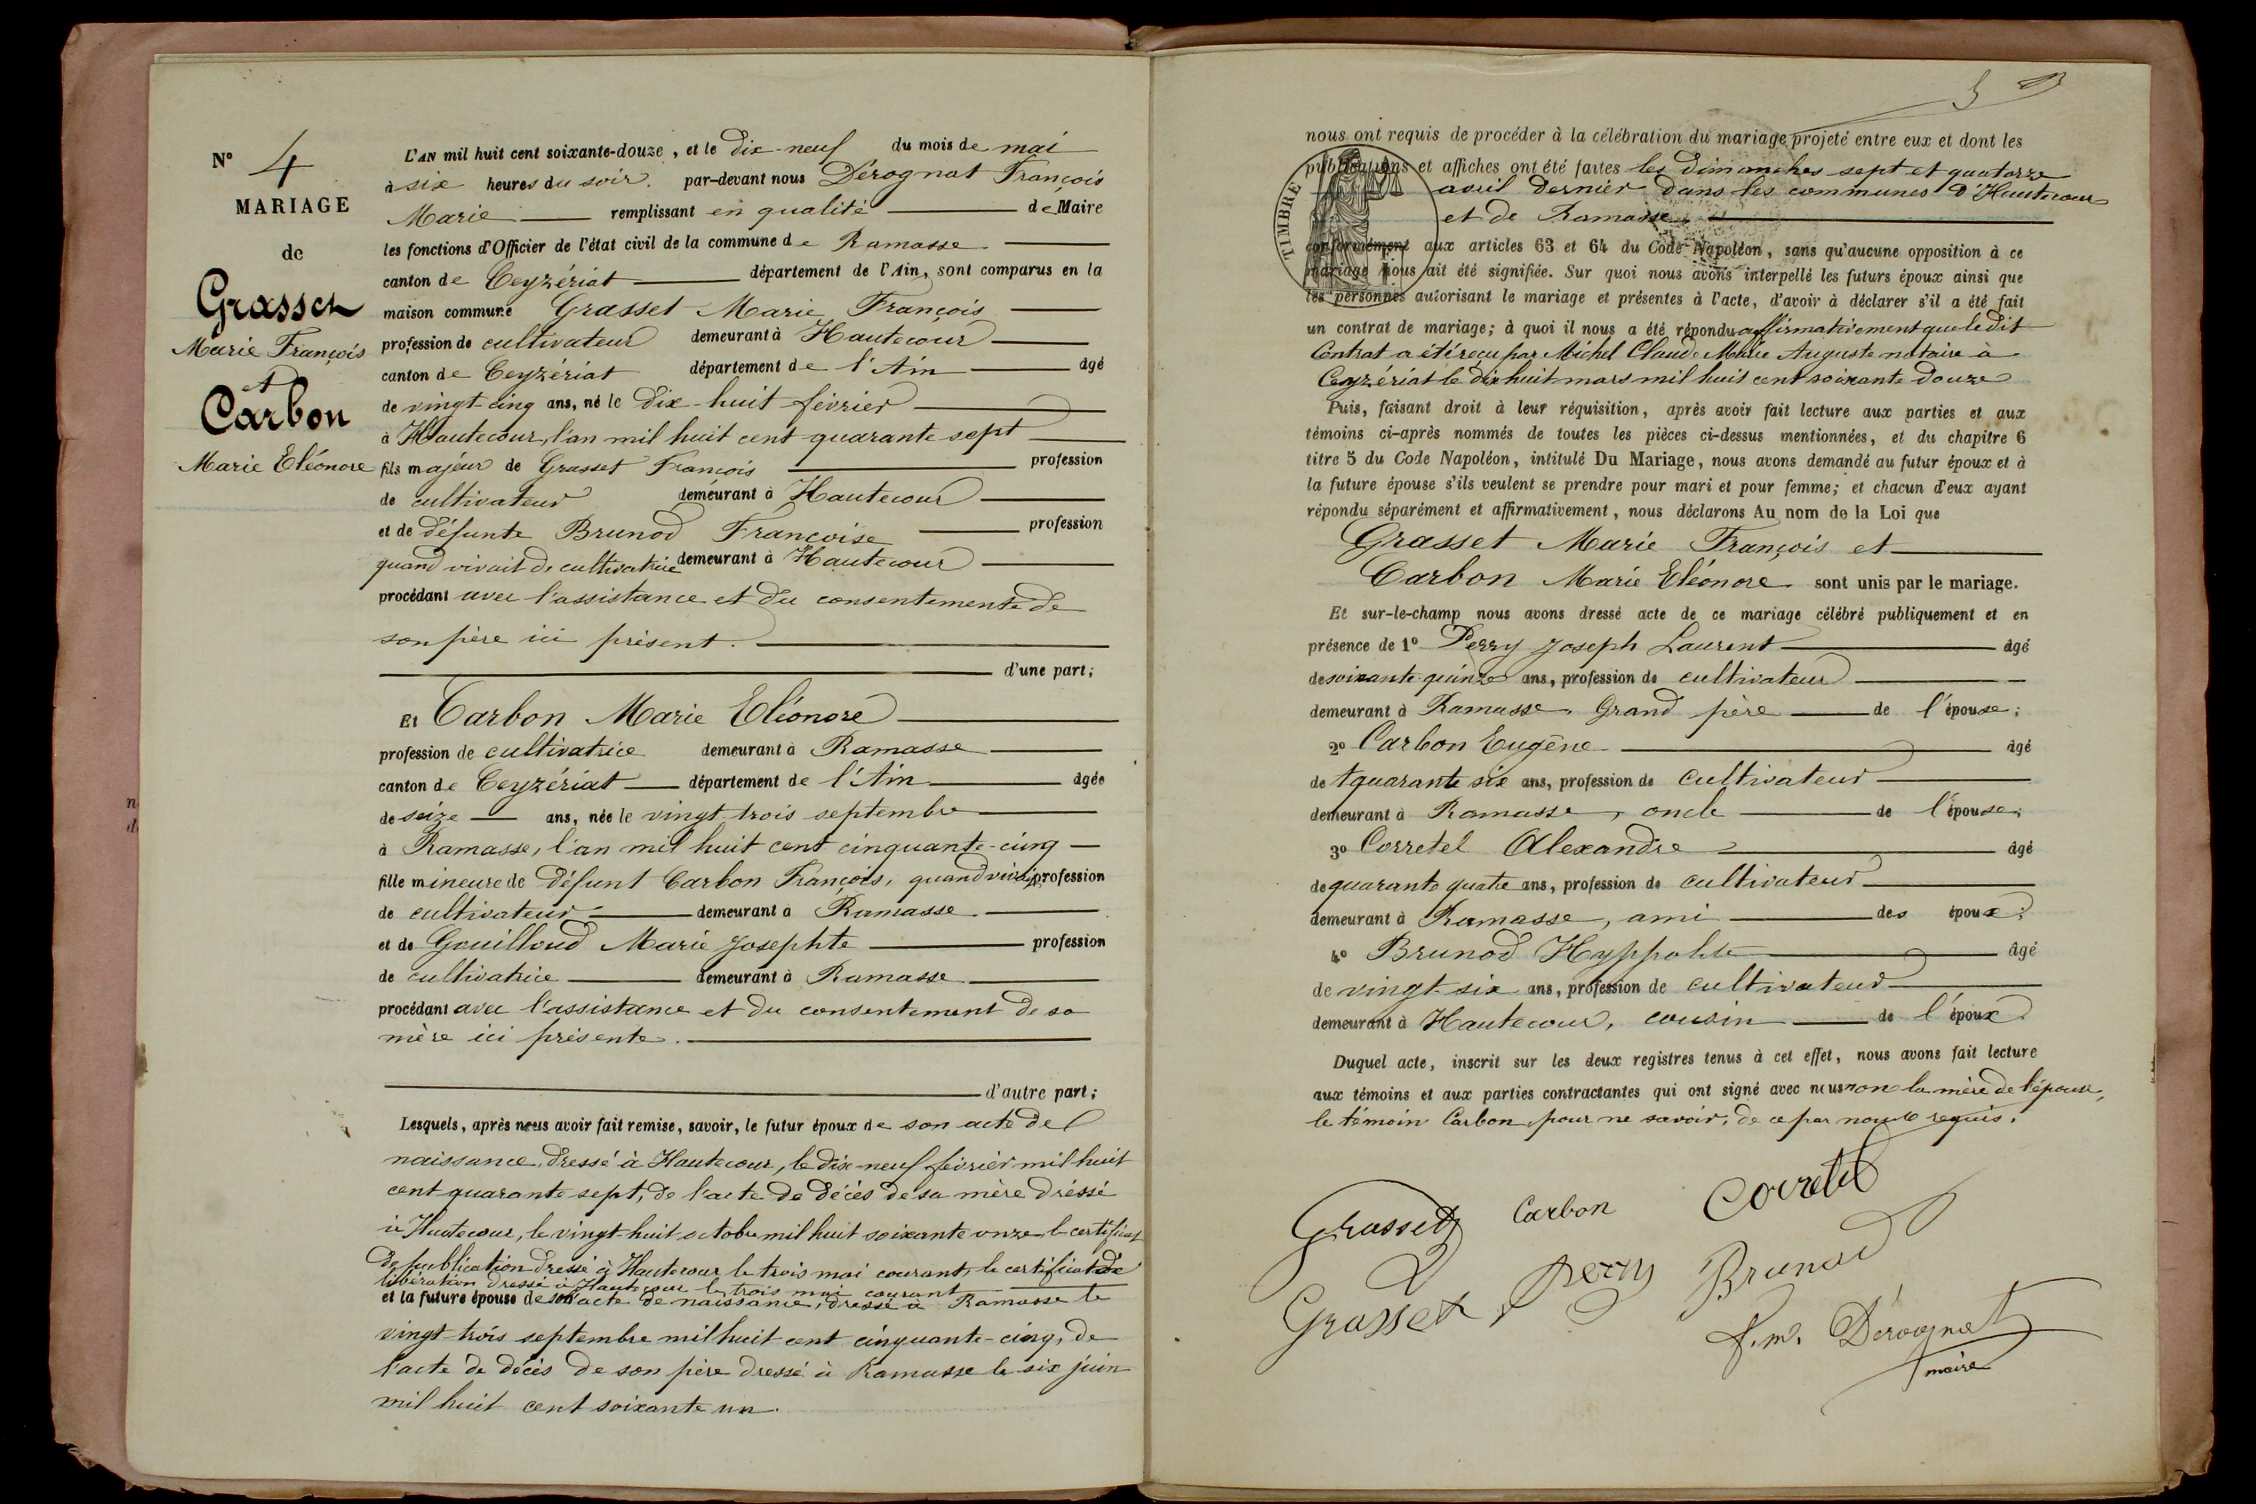 N° 4
MARIAGE
de
Grasset
Marie François
et
Carbon
Marie Eléonore
L'AN mil huit cent soixante-douze, et le dix-neuf du mois de mai
à six heures du soir. par-devant nous Dérognat François
Marie remplissant en qualité de Maire
les fonctions d'Officier de l'état civil de la commune de Ramasse
canton de Ceyzériat département de l'Ain, sont comparus en la
maison commune Grasset Marie François
profession de cultivateur demeurant à Hautecour
canton de Ceyzériat département de l'Ain agé
de vingt-cinq ans, né le dix-huit février
à Hautecour, l'an mil huit cent quarante sept
fils majeur de Grasset François profession
de cultivateur demeurant à Hautecour
et de défunte Brunod Françoise profession
quand vivait de cultivatrice demeurant à Hautecour
procédant avec l'assistance et du consentement de
son père ici présent.
d'une part;
Et Carbon Marie Eléonore
profession de cultivatrice demeurant à Ramasse
canton de Ceyzériat département de l'Ain agée
de seize ans, née le vingt trois septembre
à Ramasse, l'an mil huit cent cinquante-cinq
fille mineure de défunt Carbon François, quand vivait profession
de cultivateur demeurant à Ramasse
et de Gouilloud Marie Josephte profession
de cultivatrice demeurant à Ramasse
procédant avec l'assistance et du consentement de sa
mère ici présente.
d'autre part;
Lesquels, après nous avoir fait remise, savoir, le futur époux de son acte de
naissance, dressé à Hautecour, le dix-neuf février mil huit
cent quarante sept, de l'acte de décès de sa mère dréssé
à Hautecour, le vingt-huit octobre mil huit soixante onze, le certificat
de publication dressé à Hautecour le trois mai courant, le certificat de
libération dressé à Hautecour le trois mai courant
et la future épouse de son acte de naissance, dressé à Ramasse le
vingt trois septembre mil huit cent cinquante-cinq, de
l'acte de décès de son père dressé à Ramasse le six juin
mil huit cent soixante un.
nous ont requis de procéder à la célébration du mariage projeté entre eux et dont les
publications et affiches ont été faites les dimanches sept et quatorze
avril dernier dans les communes d'Hautecour
et de Ramasse.
TIMBRE
conformément aux articles 63 et 64 du Code Napoléon, sans qu'aucune opposition à ce
mariage nous ait été signifiée. Sur quoi nous avons interpellé les futurs époux ainsi que
les personnes autorisant le mariage et présentes à l'acte, d'avoir à déclarer s'il a été fait
un contrat de mariage; à quoi il nous a été répondu affirmativement que le dit
Contrat a été reçu par Michel Claude Marie Auguste notaire à
Ceyzériat le dix huit mars mil huit cent soixante douze
Puis, faisant droit à leur réquisition, après avoir fait lecture aux parties et aux
témoins ci-après nommés de toutes les pièces ci-dessus mentionnées, et du chapitre 6
titre 5 du Code Napoléon, intitulé Du Mariage, nous avons demandé au futur époux et à
la future épouse s'ils veulent se prendre pour mari et pour femme; et chacun d'eux ayant
répondu séparément et affirmativement, nous déclarons Au nom de la Loi que
Grasset Marie François et
Carbon Marie Eléonore sont unis par le mariage.
Et sur-le-champ nous avons dressé acte de ce mariage célébré publiquement et en
présence de 1° Perry Joseph Laurent âgé
de soixante-quinze ans, profession de cultivateur
demeurant à Ramasse, Grand père de l'épouse;
2° Carbon Eugène âgé
de quarante six ans, profession de cultivateur
demeurant à Ramasse, oncle de l'épouse;
3° Corretel Alexandre âgé
de quarante quatre ans, profession de cultivateur
demeurant à Ramasse, ami des époux;
4° Brunod Hyppolite âgé
de vingt-six ans, profession de cultivateur
demeurant à Hautecour, cousin de l'époux.
Duquel acte, inscrit sur les deux registres tenus à cet effet, nous avons fait lecture
aux témoins et aux parties contractantes qui ont signé avec nous non la mère de l'épouse,
le témoin Carbon pour ne savoir, de ce par nous requis.
Grasset Carbon Corretel
Grasset Perry Brunod
f. m. Dérognat
maire